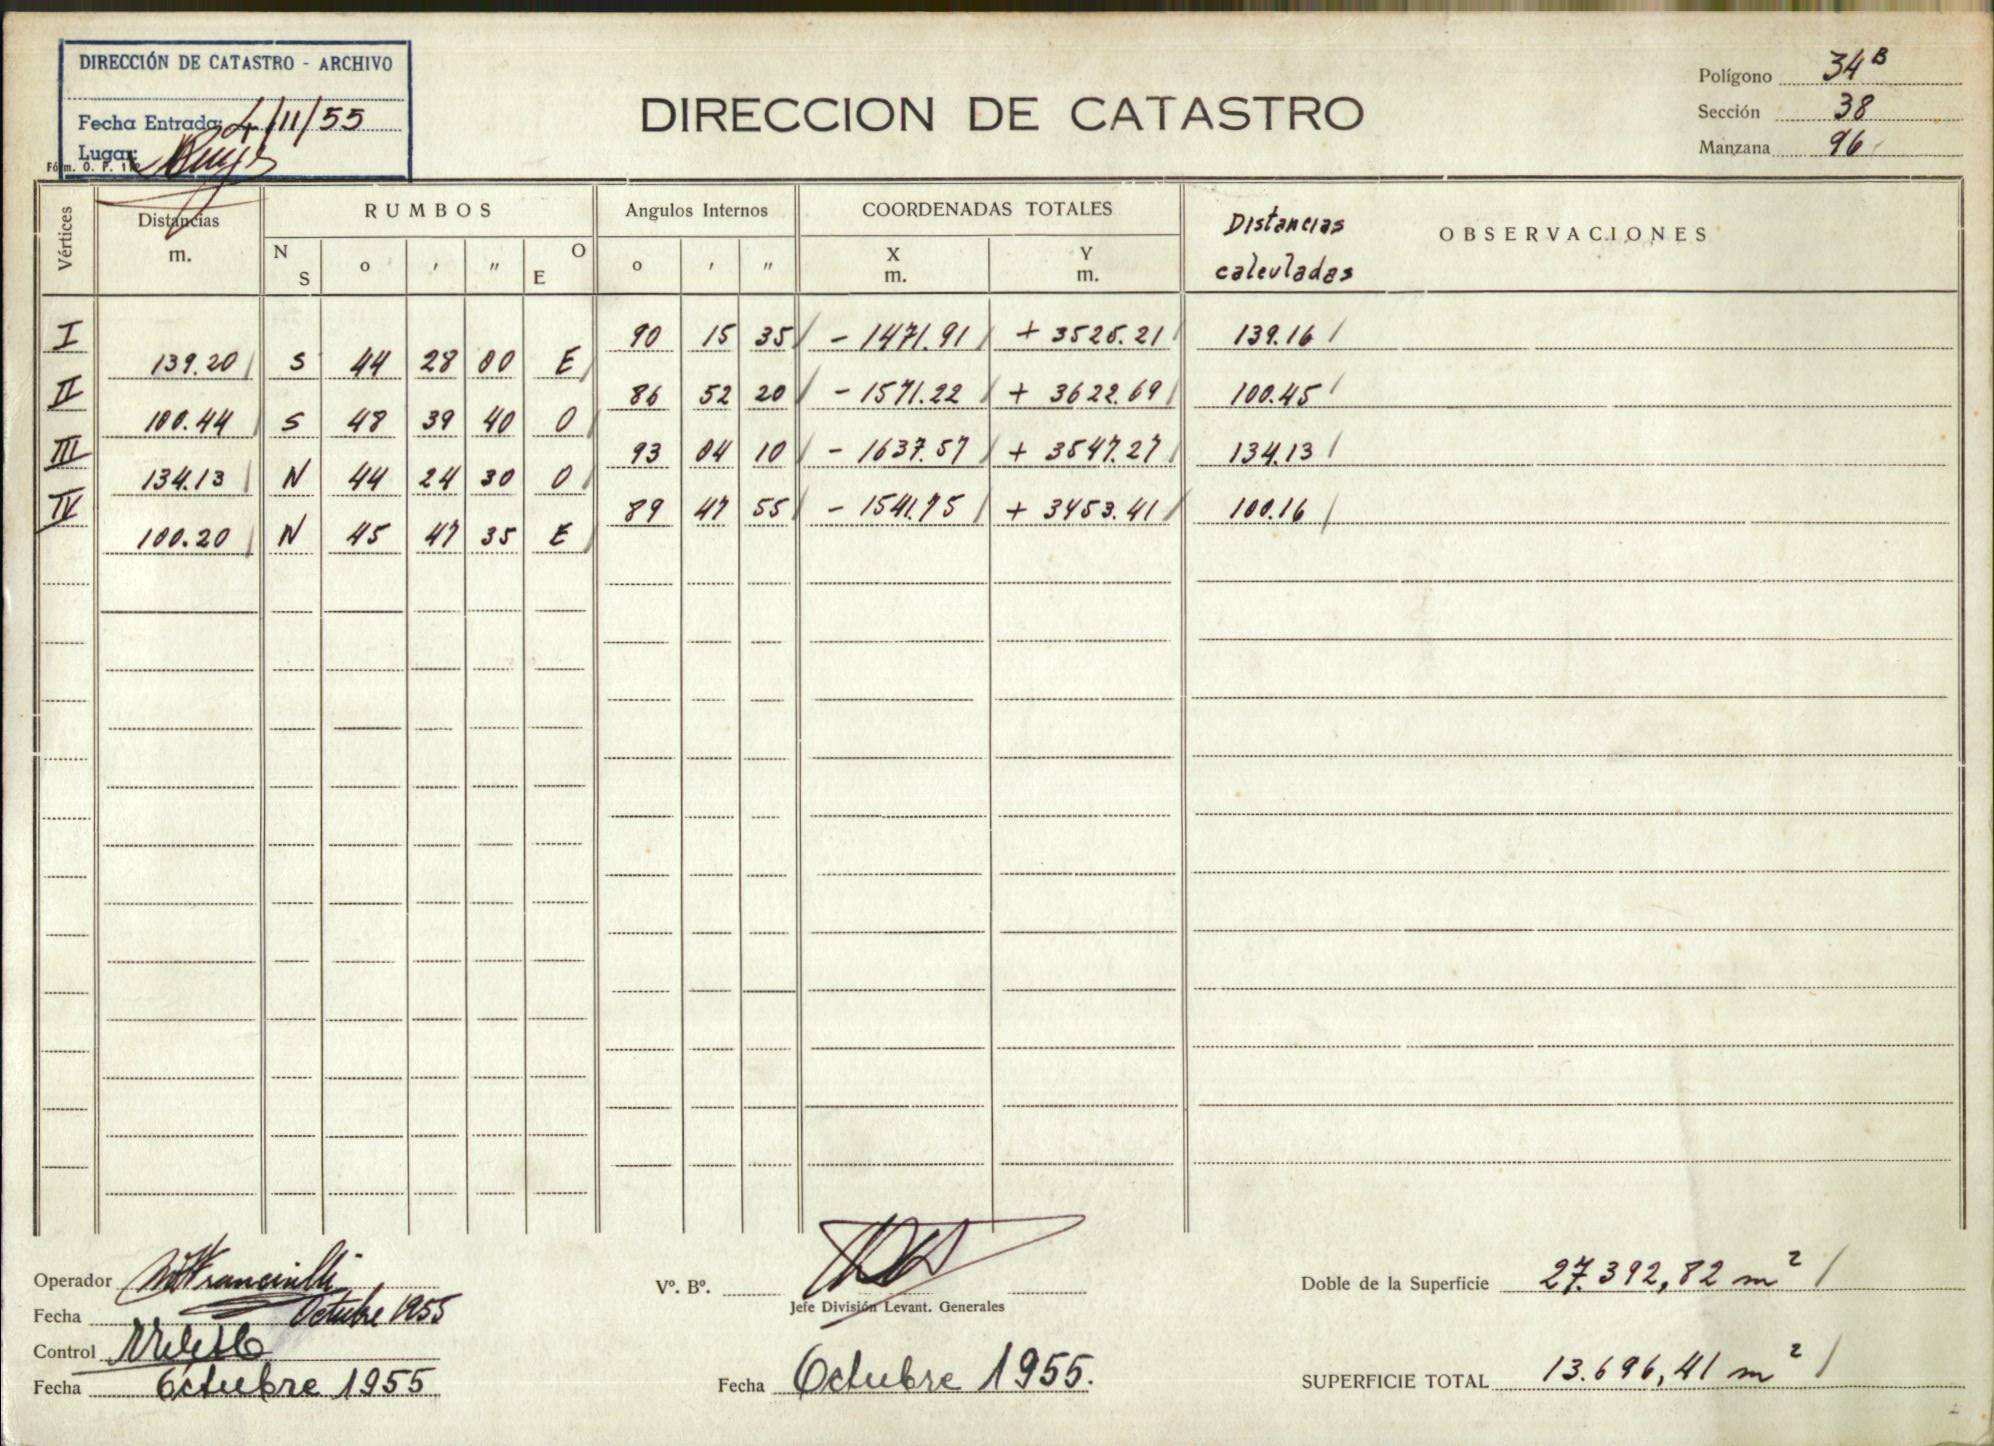 DIRECCIÓN DE CATASTRO - ARCHIVO
Fecha Entrada: 4/11/55
Lugar:
DIRECCION DE CATASTRO
Polígono 34 B
Sección 38
Manzana 96
Vértices Distancias m. RUMBOS N S o ' " O E Angulos Internos o ' " COORDENADAS TOTALES X m. Y m. Distancias calculadas OBSERVACIONES
I 90 15 35 - 1471.91 + 3525.21 139.16
139.20 S 44 28 00 E
II 86 52 20 - 1571.22 + 3622.69 100.45
100.44 S 48 39 40 O
III 93 04 10 - 1637.57 + 3547.27 134.13
134.13 N 44 24 30 O
IV 89 47 55 - 1541.75 + 3453.41 100.16
100.20 N 45 47 35 E
Operador
Fecha Octubre 1955
Control
Fecha Octubre 1955
Vº. Bº.
Jefe División Levant. Generales
Fecha Octubre 1955.
Doble de la Superficie 27.392,82 m²
SUPERFICIE TOTAL 13.696,41 m²